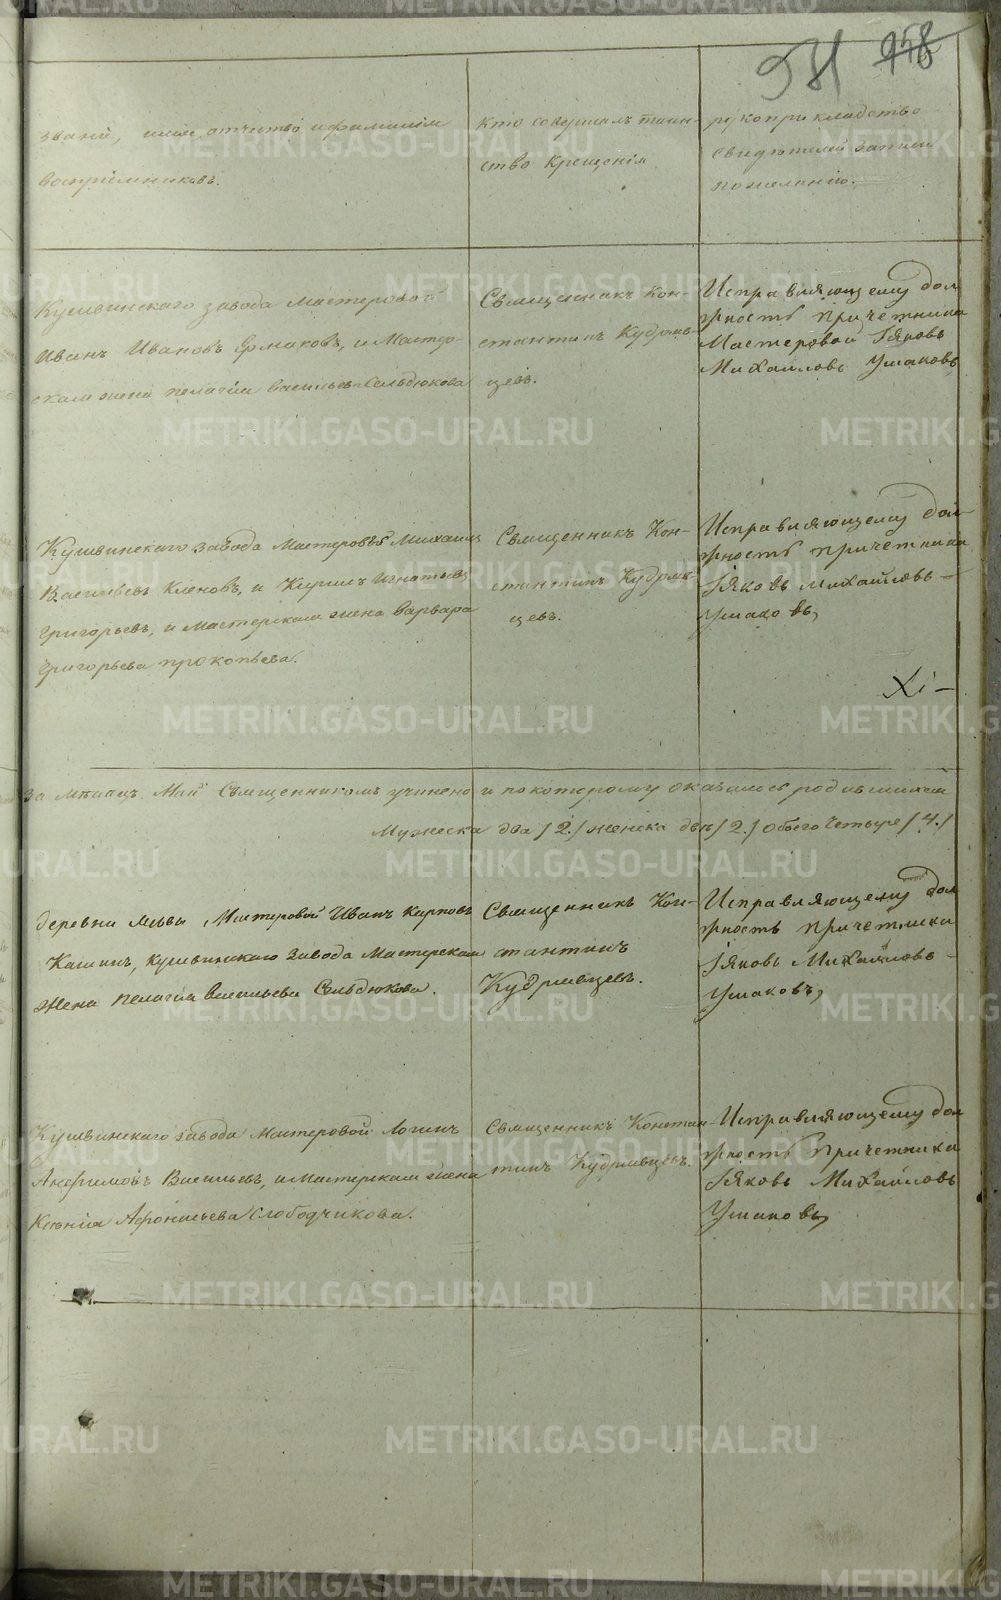 951 958
званіе, имя, отчество и фамилія
воспріемниковъ.
Кто совершалъ таин-
ство крещенія
рукоприкладство
свидѣтелей записи
по желанію.
Кушвинскаго завода Мастеровой
Иванъ Ивановъ Ермаковъ, и Мастер-
ская жена Пелагія Васильева Сельдюкова
Священникъ Кон-
стантинъ Кудряв-
цевъ.
Исправляющему дол
жность причетника
Мастеровой Іяковъ
Михаиловъ Ушаковъ
Кушвинскаго завода Мастеровые Михаилъ
Васильевъ Кленовъ, и Кирилъ Игнатьевъ
Григорьевъ, и Мастерская жена Варвара
Григорьева Прокопьева.
Священникъ Кон-
стантинъ Кудряв-
цевъ.
Исправляющему дол
жность причетника
Іяковь Михайловь
Ушаковъ
Хі
За Мѣсяцъ Май Священникомъ учинено и по которому оказалось родившихся
Мужеска два /2./ женска двѣ /2./ обоего Четыре /4./
деревни Мастеровой Иванъ Карповъ
Кашинъ, Кушвинскаго Завода Мастерская
жена Пелагия Васильева Сельдюкова.
Священникъ Кон-
стантинъ
Кудрявцевъ.
Исправляющему дол
жность причетника
Іяковь Михайловь
Ушаковъ
Кушвинскаго завода Мастеровой Логинъ
Анфимовъ Васильевъ, и Мастерская жена
Ксенія Афонасьева Слободчикова.
Священникъ Констан-
тинъ Кудрявцевъ.
Исправляющему дол
жность Причетника
Іяковь Михайловь
Ушаковъ
METRIKI.GASO-URAL.RU